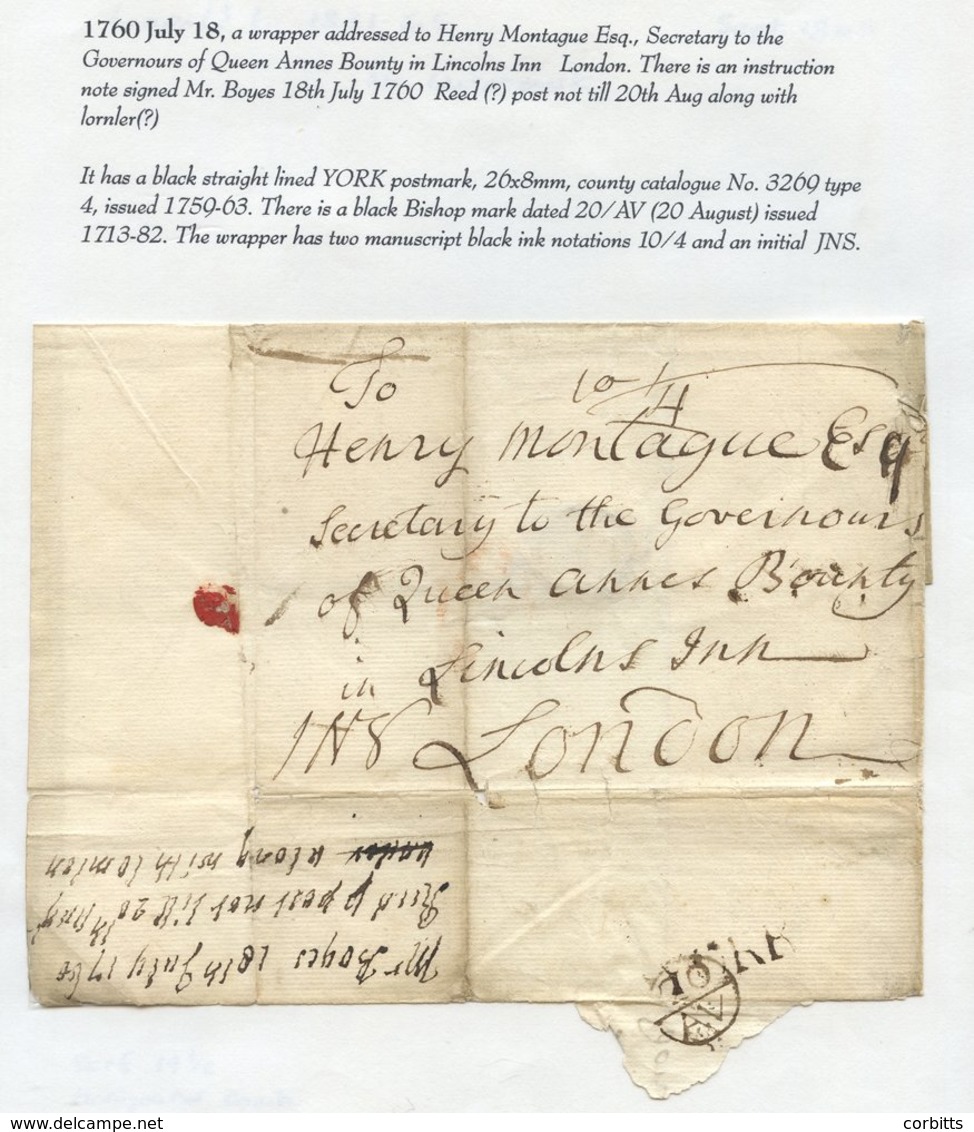 1760 July 18, a wrapper addressed to Henry Montague Esq., Secretary to the
Governours of Queen Annes Bounty in Lincolns Inn London. There is an instruction
note signed Mr. Boyes 18th July 1760 Reed (?) post not till 20th Aug along with
lornler(?)
It has a black straight lined YORK postmark, 26x8mm, county catalogue No. 3269 type
4, issued 1759-63. There is a black Bishop mark dated 20/AV (20 August) issued
1713-82. The wrapper has two manuscript black ink notations 10/4 and an initial JNS.
To
10/4
Henry Montague Esq
Secretary to the Governours
of Queen Annes Bounty
in Lincolns Inn
London
Mr Boyes 18th July 1760
post not till 20th Aug
along with
YORK
AV
corbitts